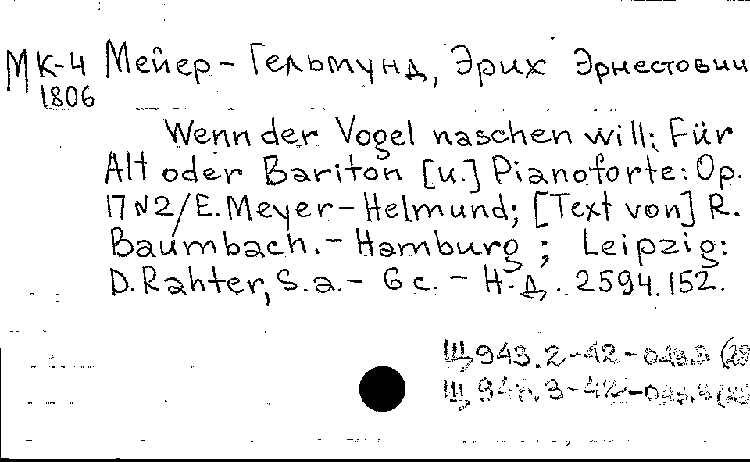 МК-4 Мейер-Гельмунд, Эрих Эрнестович
1806
Wenn der Vogel naschen will: Für
Alt oder Bariton [u.] Pianoforte: Op.
17 N2/E. Meyer-Helmund; [Text von] R.
Baumbach. - Hamburg ; Leipzig:
D. Rahter, S. a. - 6 c. - Н. Д. 2594.152.
Щ943.2-42-